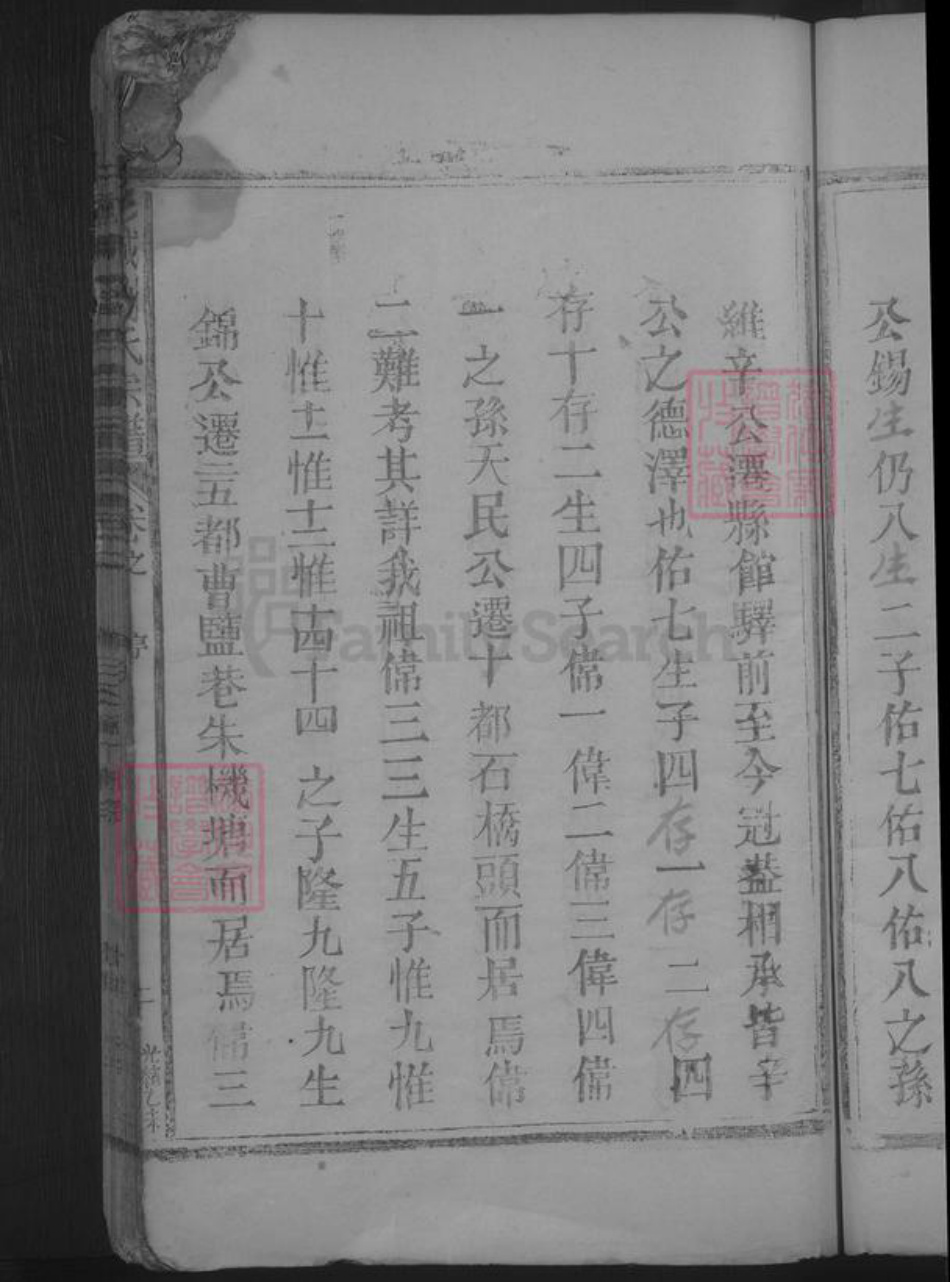 公錫生仍八生二子佑七佑八佑八之孫
維辛公遷縣館驛前至今冠葢相承皆辛
公之德澤也佑七生子四存一存二存四
存十存二生四子偉一偉二偉三偉四偉
一之孫天民公遷十都石橋頭而居焉偉
二難考其詳我祖偉三三生五子惟九惟
十惟十一惟十二惟十四十四之子隆九隆九生
錦公遷三五都曹鹽巷朱機塘而居焉偉三
氏宗譜 卷之
光緒乙未
FamilySearch